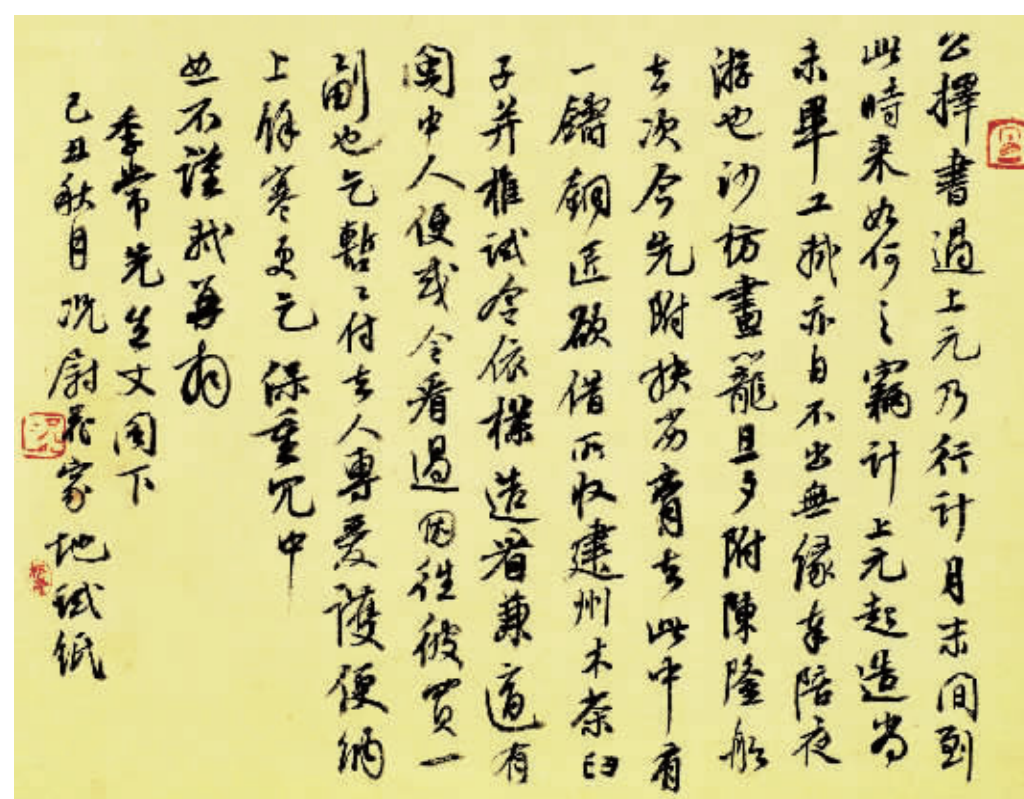 公擇書過上元乃行計月末間到
此時来如何之竊計上元起造尚
未畢工軾亦自不出無緣奉陪夜
游也沙枋畫籠旦夕附陳隆船
去次今先附扶劣膏去此中有
一鑄銅匠欲借所收建州木茶臼
子并椎試令依樣造看兼適有
閩中人便或令看過因往彼買一
副也乞暫〻付去人專愛護便納
上餘寒更乞保重冗中
恕不謹軾再拜
季常先生丈閣下
己丑秋月況尉 家地試紙